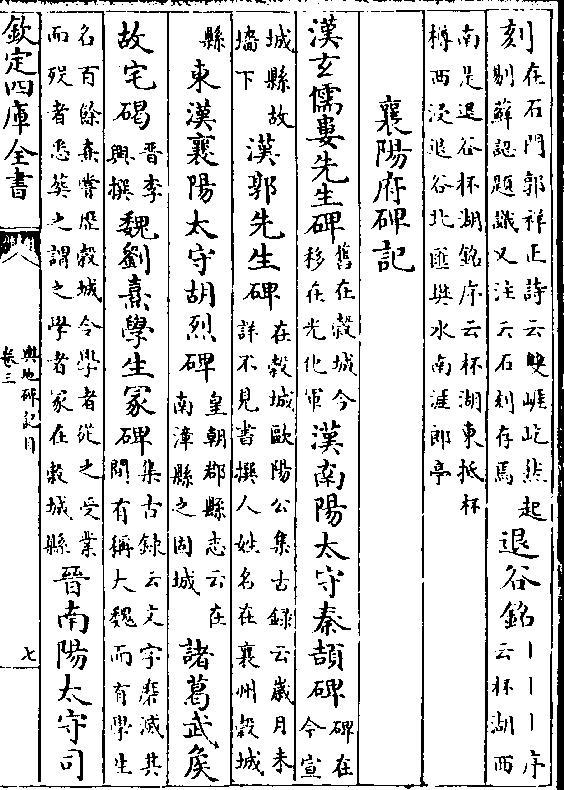 刻在石門郭祥正詩云雙崕屹然起剔蘚認題識又注云石刻存焉退谷銘丨丨丨序云杯湖西
南是退谷杯湖銘序云杯湖東抵杯樽西浸退谷北匯樊水南涯郎亭
襄陽府碑記
漢玄儒婁先生碑舊在穀城今移在光化軍漢南陽太守秦頡碑碑在今宣
城縣故墻下漢郭先生碑在穀城歐陽公集古録云歲月未詳不見書撰人姓名在襄州穀城
縣東漢襄陽太守胡烈碑皇朝郡縣志云在南漳縣之固城諸葛武矦
故宅碣晉李興撰魏劉熹學生冢碑集古録云文字磨滅其間有稱大魏而有學生
名百餘熹嘗歴穀城令學者從之受業而歿者悉葬之謂之學者冢在穀城縣晉南陽太守司
欽定四庫全書
輿地碑記目
卷三
七